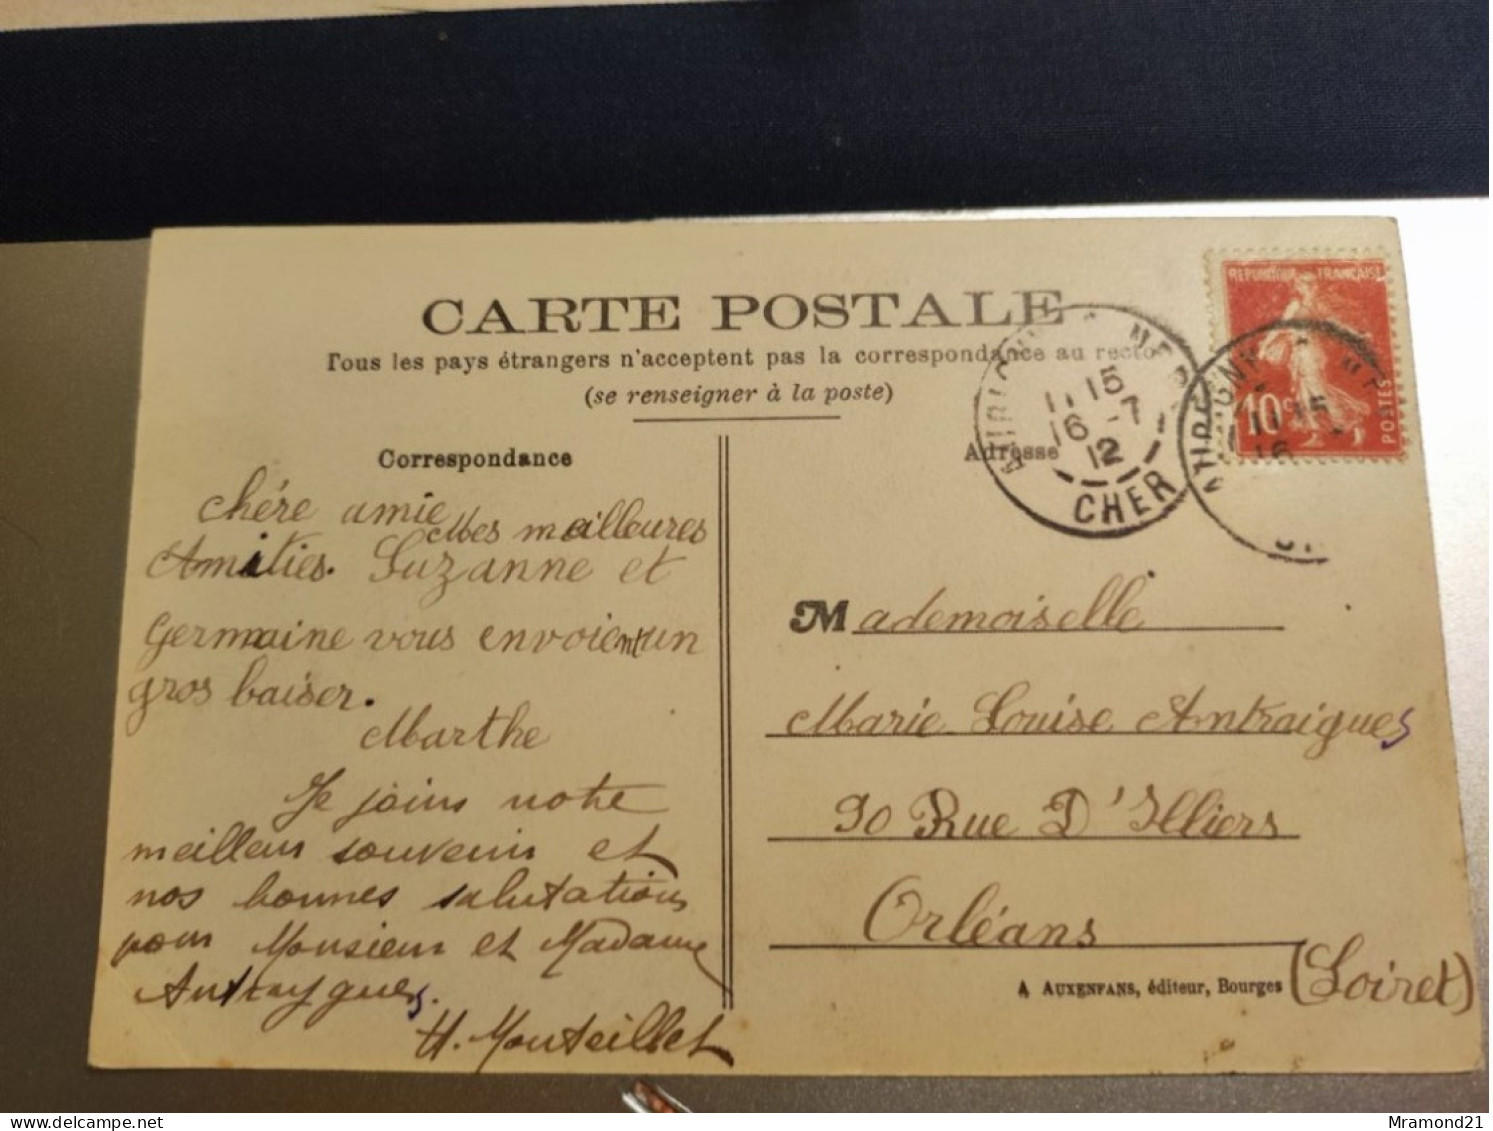 CARTE POSTALE
Tous les pays étrangers n'acceptent pas la correspondance au recto
(se renseigner à la poste)
Correspondance
chére amie
Mes meilleures
Amitiés. Suzanne et
Germaine vous envoient un
gros baiser.
Marthe
Je joins notre
meilleur souvenir et
nos bonnes salutations
pour Monsieur et Madame
Antraygues.
H. Monteillet
REPUBLIQUE FRANÇAISE
10c
POSTES
11 15
16 -7
12
CHER
11 15
16
Adresse
Mademoiselle
Marie Louise Antraigues
90 Rue D'Illiers
Orléans
(Loiret)
A AUXENFANS, éditeur, Bourges
delcampe.net
Mramond21